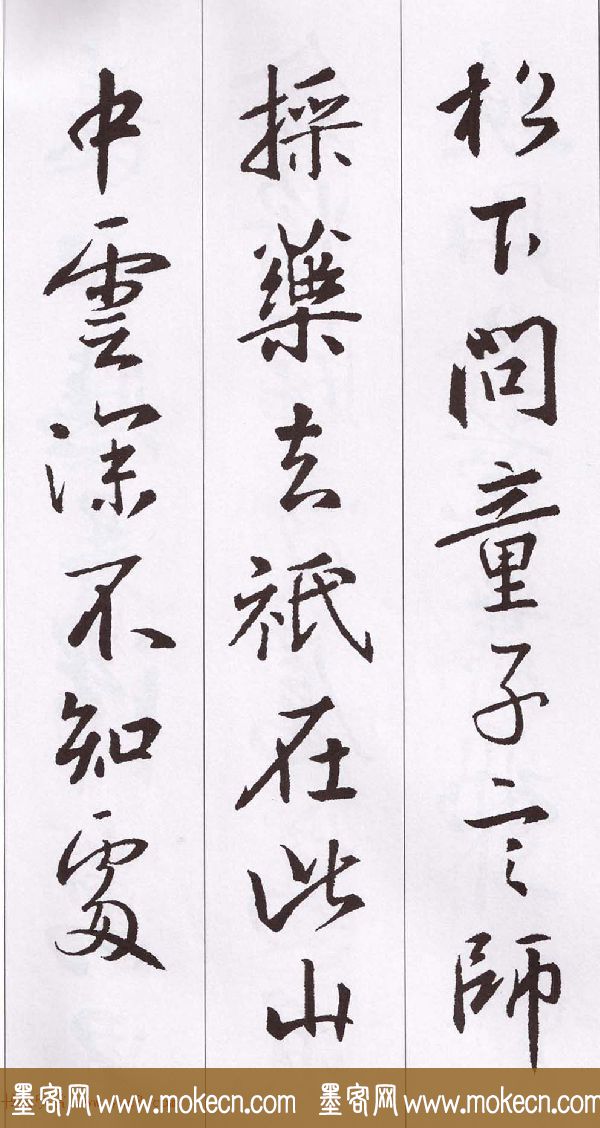 松下問童子言師
採藥去祇在此山
中雲深不知處
墨客网 www.mokecn.com 墨客网 www.mokecn.com